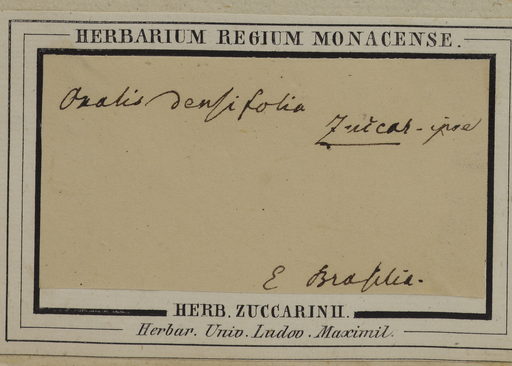 HERBARIUM REGIUM MONACENSE.
Oxalis densifolia
Zuccar. ipse
E Brasilia.
HERB. ZUCCARINII.
Herbar. Univ. Ludov. Maximil.